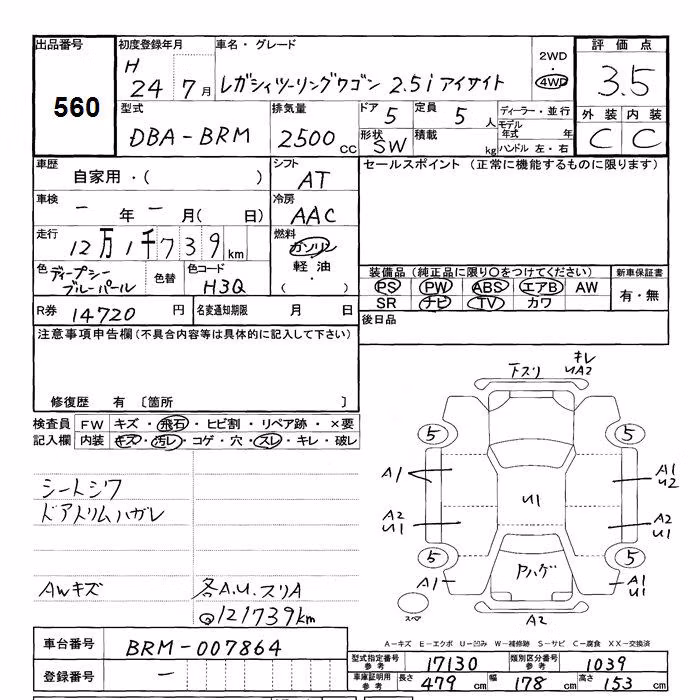 出品番号
560
初度登録年月
H 24 7月
車名・グレード
レガシィツーリングワゴン 2.5i アイサイト
2WD
・
4WD
評価点
3.5
型式
DBA-BRM
排気量
2500 CC
ドア 5
定員 5人
形状 SW
積載 kg
ディーラー・並行
モデル年式 年
ハンドル 左・右
外装 内装
C C
車歴
自家用・( )
シフト
AT
セールスポイント(正常に機能するものに限ります)
車検
- 年 - 月( 日)
冷房
AAC
走行
12万1千739km
燃料
ガソリン
軽油
・
( )
色 ディープシーブルーパール
色替
色コード
H3Q
装備品(純正品に限り○をつけてください)
PS PW ABS エアB AW
SR ナビ TV カワ
新車保証書
有・無
R券 14720 円
名変通知期限 月 日
後日品
注意事項申告欄(不具合内容等は具体的に記入して下さい)
修復歴 有 〔箇所 〕
検査員記入欄
FW キズ・飛石・ヒビ割・リペア跡・×要
内装 キズ・汚レ・コゲ・穴・スレ・キレ・破レ
シートシワ
ドアトリムハガレ
AWキズ
各A.U.スリA
Q121739km
下スリ
キレ
UA2
5
5
A1
A1
U2
U1
A2
U1
A2
U1
5
5
A1
Aハゲ
A1
U1
スペア
A2
A-キズ E-エクボ U-凹み W-補修跡 S-サビ C-腐食 XX-交換済
車台番号
BRM-007864
登録番号
-
型式指定番号 参考 17130
類別区分番号 参考 1039
車庫証明用 参考 長さ 479 cm 幅 178 cm 高さ 153 cm